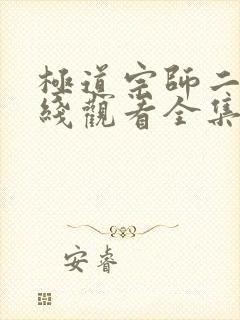 極道宗師二
綫觀看全集
安睿